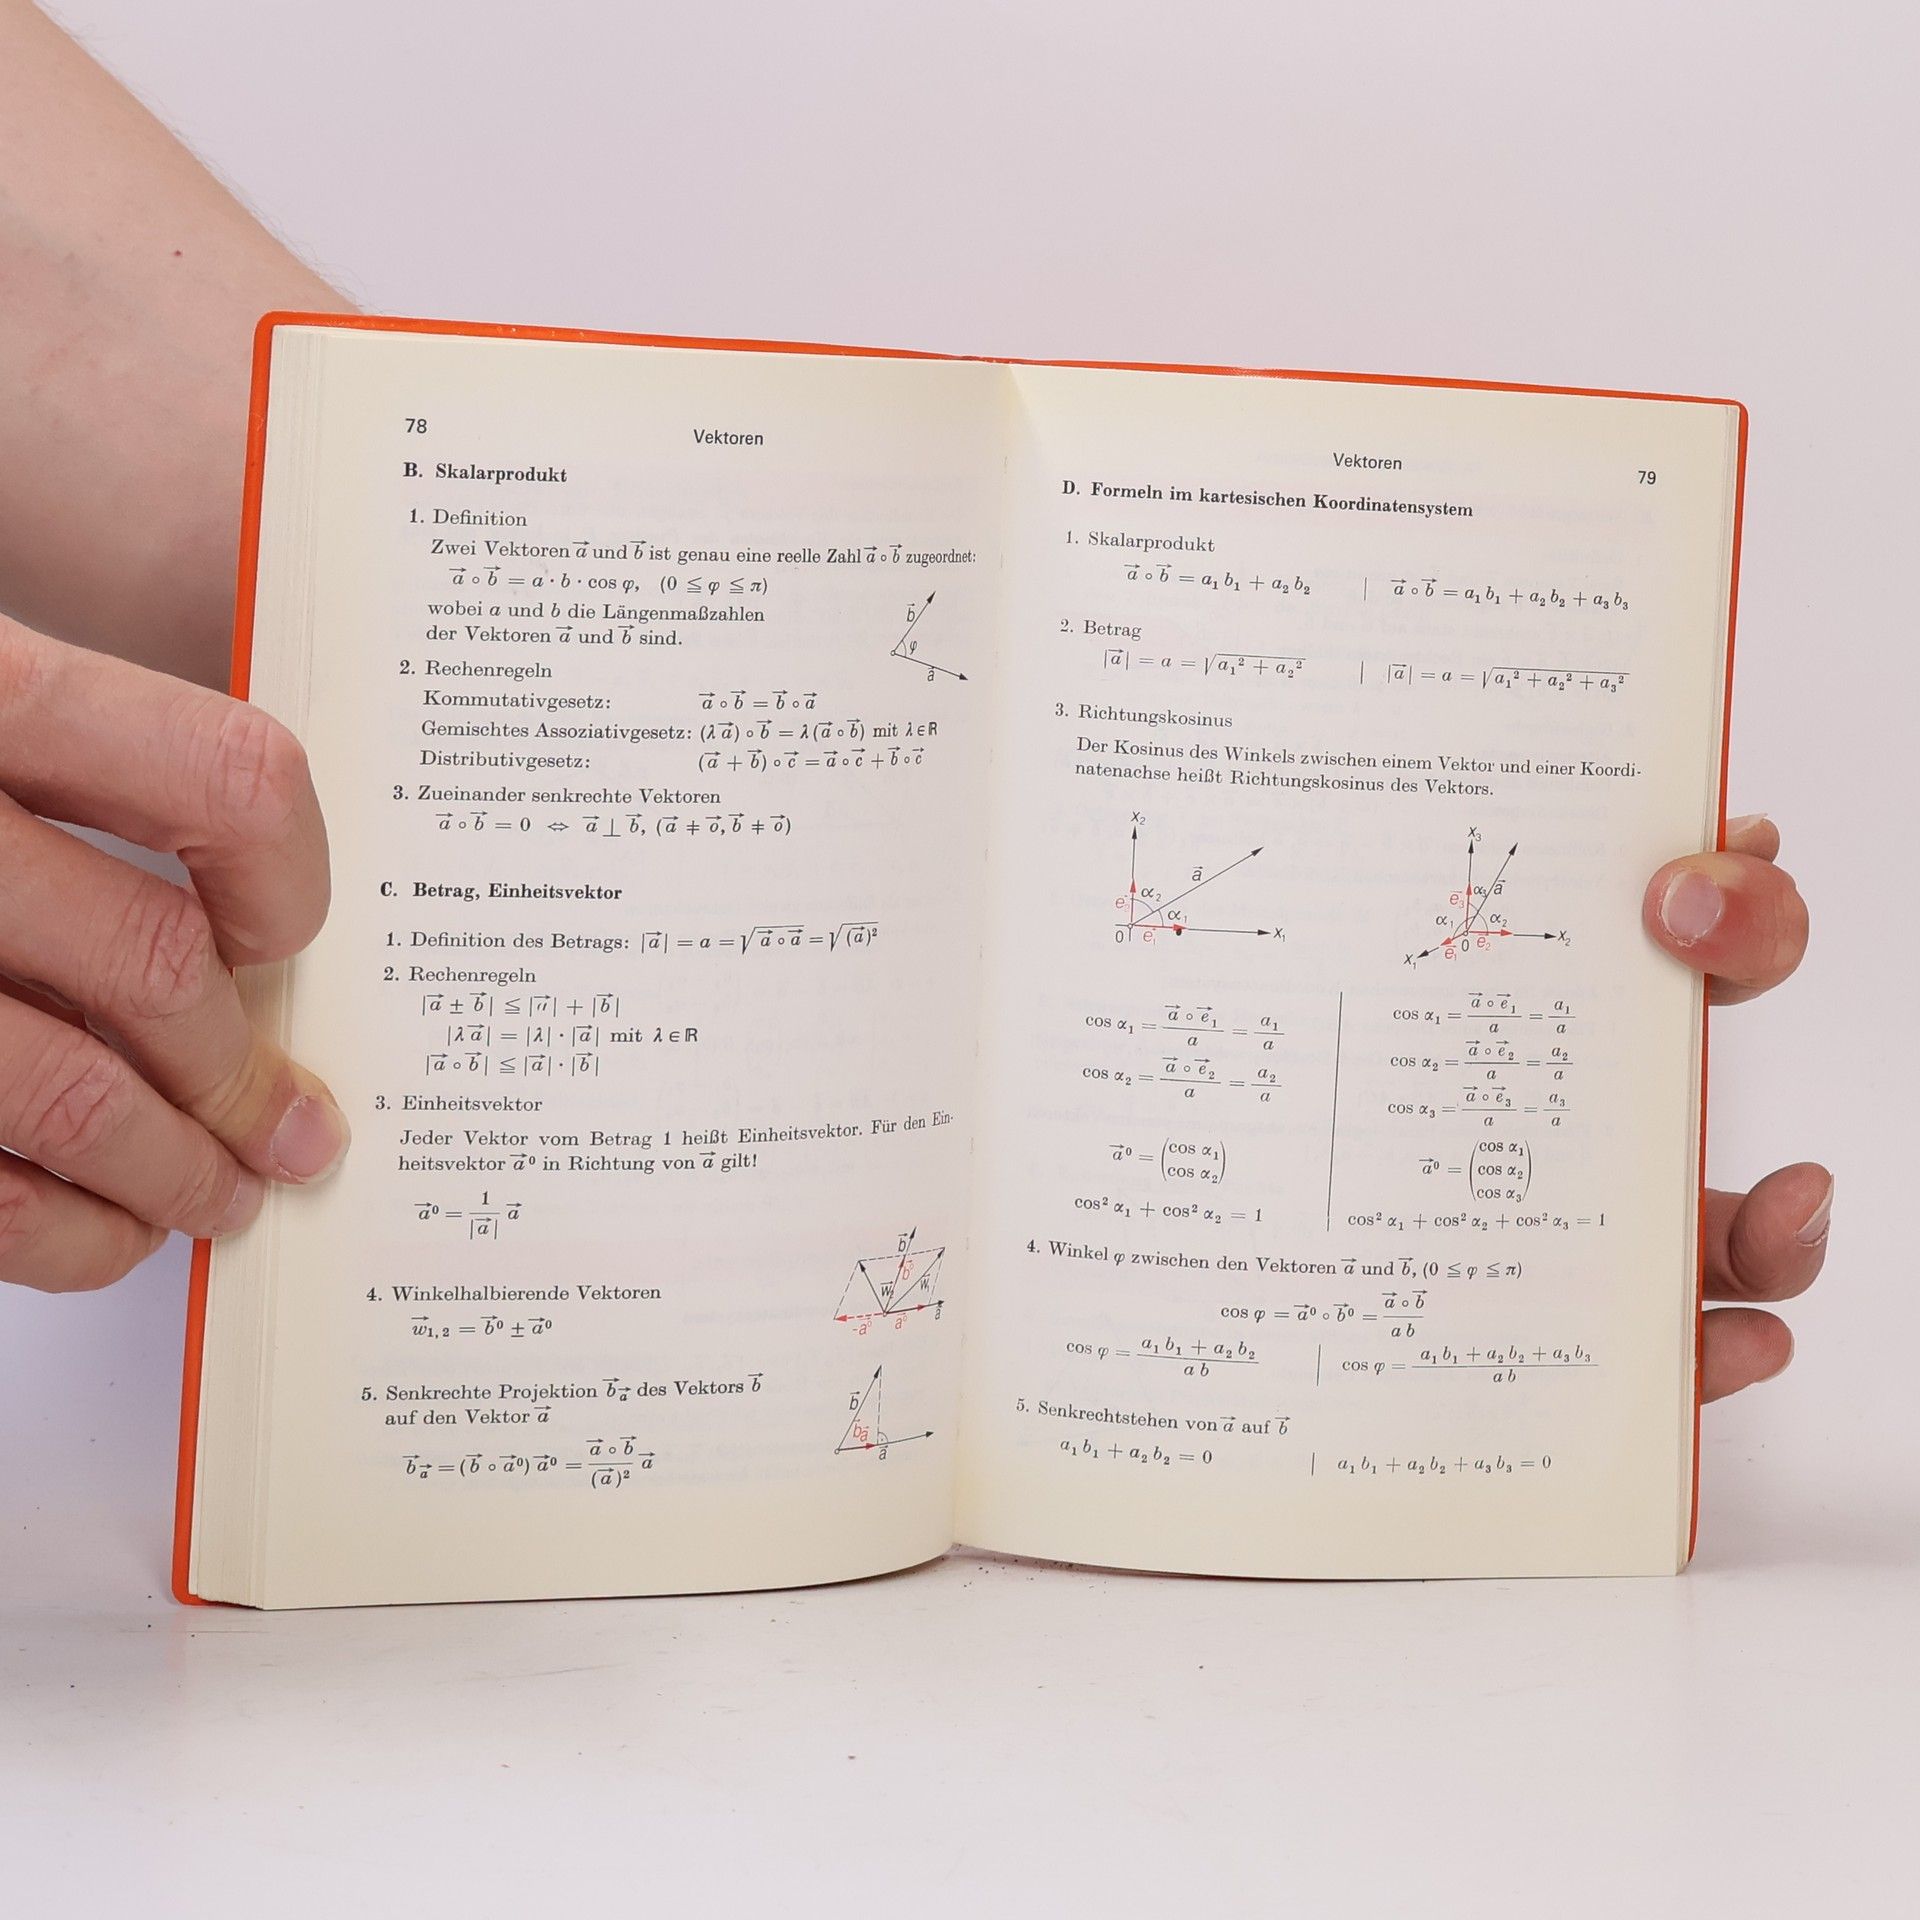 78
Vektoren
B. Skalarprodukt
1. Definition
Zwei Vektoren a⃗ und b⃗ ist genau eine reelle Zahl a⃗ ∘ b⃗ zugeordnet:
a⃗ ∘ b⃗ = a · b · cos φ, (0 ≦ φ ≦ π)
wobei a und b die Längenmaßzahlen
der Vektoren a⃗ und b⃗ sind.
b⃗
φ
a⃗
2. Rechenregeln
Kommutativgesetz: a⃗ ∘ b⃗ = b⃗ ∘ a⃗
Gemischtes Assoziativgesetz: (λ a⃗) ∘ b⃗ = λ (a⃗ ∘ b⃗) mit λ ∈ ℝ
Distributivgesetz: (a⃗ + b⃗) ∘ c⃗ = a⃗ ∘ c⃗ + b⃗ ∘ c⃗
3. Zueinander senkrechte Vektoren
a⃗ ∘ b⃗ = 0 ⇔ a⃗ ⊥ b⃗, (a⃗ ≠ o⃗, b⃗ ≠ o⃗)
C. Betrag, Einheitsvektor
1. Definition des Betrags: |a⃗| = a = √(a⃗ ∘ a⃗) = √((a⃗)²)
2. Rechenregeln
|a⃗ ± b⃗| ≦ |a⃗| + |b⃗|
|λ a⃗| = |λ| · |a⃗| mit λ ∈ ℝ
|a⃗ ∘ b⃗| ≦ |a⃗| · |b⃗|
3. Einheitsvektor
Jeder Vektor vom Betrag 1 heißt Einheitsvektor. Für den Ein-
heitsvektor a⃗⁰ in Richtung von a⃗ gilt!
a⃗⁰ = 1/|a⃗| a⃗
4. Winkelhalbierende Vektoren
w⃗₁,₂ = b⃗⁰ ± a⃗⁰
b⃗
b⃗⁰
w⃗₂ w⃗₁
-a⃗⁰ a⃗⁰ a⃗
5. Senkrechte Projektion b⃗ₐ⃗ des Vektors b⃗
auf den Vektor a⃗
b⃗ₐ⃗ = (b⃗ ∘ a⃗⁰) a⃗⁰ = (a⃗ ∘ b⃗)/(a⃗)² a⃗
b⃗
b⃗ₐ⃗
a⃗
Vektoren
79
D. Formeln im kartesischen Koordinatensystem
1. Skalarprodukt
a⃗ ∘ b⃗ = a₁ b₁ + a₂ b₂ | a⃗ ∘ b⃗ = a₁ b₁ + a₂ b₂ + a₃ b₃
2. Betrag
|a⃗| = a = √(a₁² + a₂²) | |a⃗| = a = √(a₁² + a₂² + a₃²)
3. Richtungskosinus
Der Kosinus des Winkels zwischen einem Vektor und einer Koordi-
natenachse heißt Richtungskosinus des Vektors.
x₂
a⃗
e⃗₂ α₂
α₁
0 e⃗₁ x₁
x₃
e⃗₃ α₃ a⃗
α₁ α₂
x₁ e⃗₁ 0 e⃗₂ x₂
cos α₁ = (a⃗ ∘ e⃗₁)/a = a₁/a
cos α₂ = (a⃗ ∘ e⃗₂)/a = a₂/a
a⃗⁰ = (cos α₁
cos α₂)
cos² α₁ + cos² α₂ = 1
cos α₁ = (a⃗ ∘ e⃗₁)/a = a₁/a
cos α₂ = (a⃗ ∘ e⃗₂)/a = a₂/a
cos α₃ = (a⃗ ∘ e⃗₃)/a = a₃/a
a⃗⁰ = (cos α₁
cos α₂
cos α₃)
cos² α₁ + cos² α₂ + cos² α₃ = 1
4. Winkel φ zwischen den Vektoren a⃗ und b⃗, (0 ≦ φ ≦ π)
cos φ = a⃗⁰ ∘ b⃗⁰ = (a⃗ ∘ b⃗)/(a b)
cos φ = (a₁ b₁ + a₂ b₂)/(a b) | cos φ = (a₁ b₁ + a₂ b₂ + a₃ b₃)/(a b)
5. Senkrechtstehen von a⃗ auf b⃗
a₁ b₁ + a₂ b₂ = 0 | a₁ b₁ + a₂ b₂ + a₃ b₃ = 0